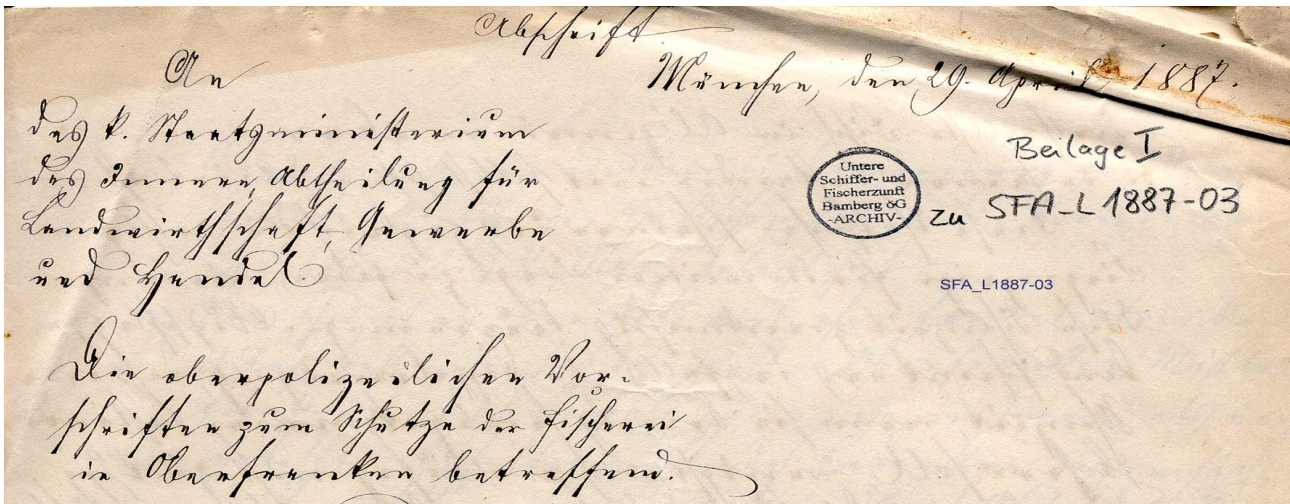 Abschrift.
An
München, den 29. April 1887.
das k. Staatsministerium
des Innern, Abtheilung für
Landwirthschaft, Gewerbe
und Handel.
Beilage I
zu SFA_L 1887-03
Untere
Schiffer- und
Fischerzunft
Bamberg öG
-ARCHIV-
SFA_L1887-03
Die oberpolizeilichen Vor-
schriften zum Schutze der Fischerei
in Oberfranken betreffend.